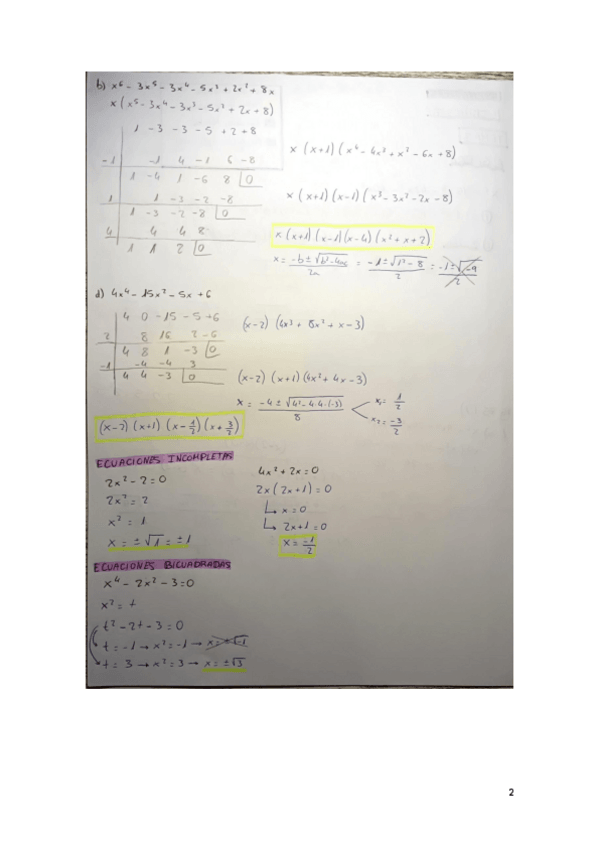 b) x⁶ - 3x⁵ - 3x⁴ - 5x³ + 2x² + 8x
x (x⁵ - 3x⁴ - 3x³ - 5x² + 2x + 8)
1 -3 -3 -5 +2 +8
-1 -1 4 -1 6 -8
1 -4 1 -6 8 0
1 1 -3 -2 -8
1 -3 -2 -8 0
4 4 4 8
1 1 2 0
x (x+1) (x⁴ - 4x³ + x² - 6x + 8)
x (x+1) (x-1) (x³ - 3x² - 2x - 8)
x (x+1) (x-1) (x-4) (x² + x + 2)
x = -b ± √b²-4ac / 2a = -1 ± √1² - 8 / 2 = -1 ± √-9 / 2
d) 4x⁴ - 15x² - 5x + 6
4 0 -15 -5 +6
2 8 16 2 -6
4 8 1 -3 0
-1 -4 -4 3
4 4 -3 0
(x-2) (4x³ + 8x² + x - 3)
(x-2) (x+1) (4x² + 4x - 3)
x = -4 ± √4² - 4·4·(-3) / 8
x₁ = 1/2
x₂ = -3/2
(x-2) (x+1) (x - 1/2) (x + 3/2)
ECUACIONES INCOMPLETAS
2x² - 2 = 0
2x² = 2
x² = 1
x = ± √1 = ± 1
4x² + 2x = 0
2x (2x+1) = 0
↳ x = 0
↳ 2x+1 = 0
x = -1/2
ECUACIONES BICUADRADAS
x⁴ - 2x² - 3 = 0
x² = t
t² - 2t - 3 = 0
t = -1 → x² = -1 → x = ± √-1
t = 3 → x² = 3 → x = ± √3
2